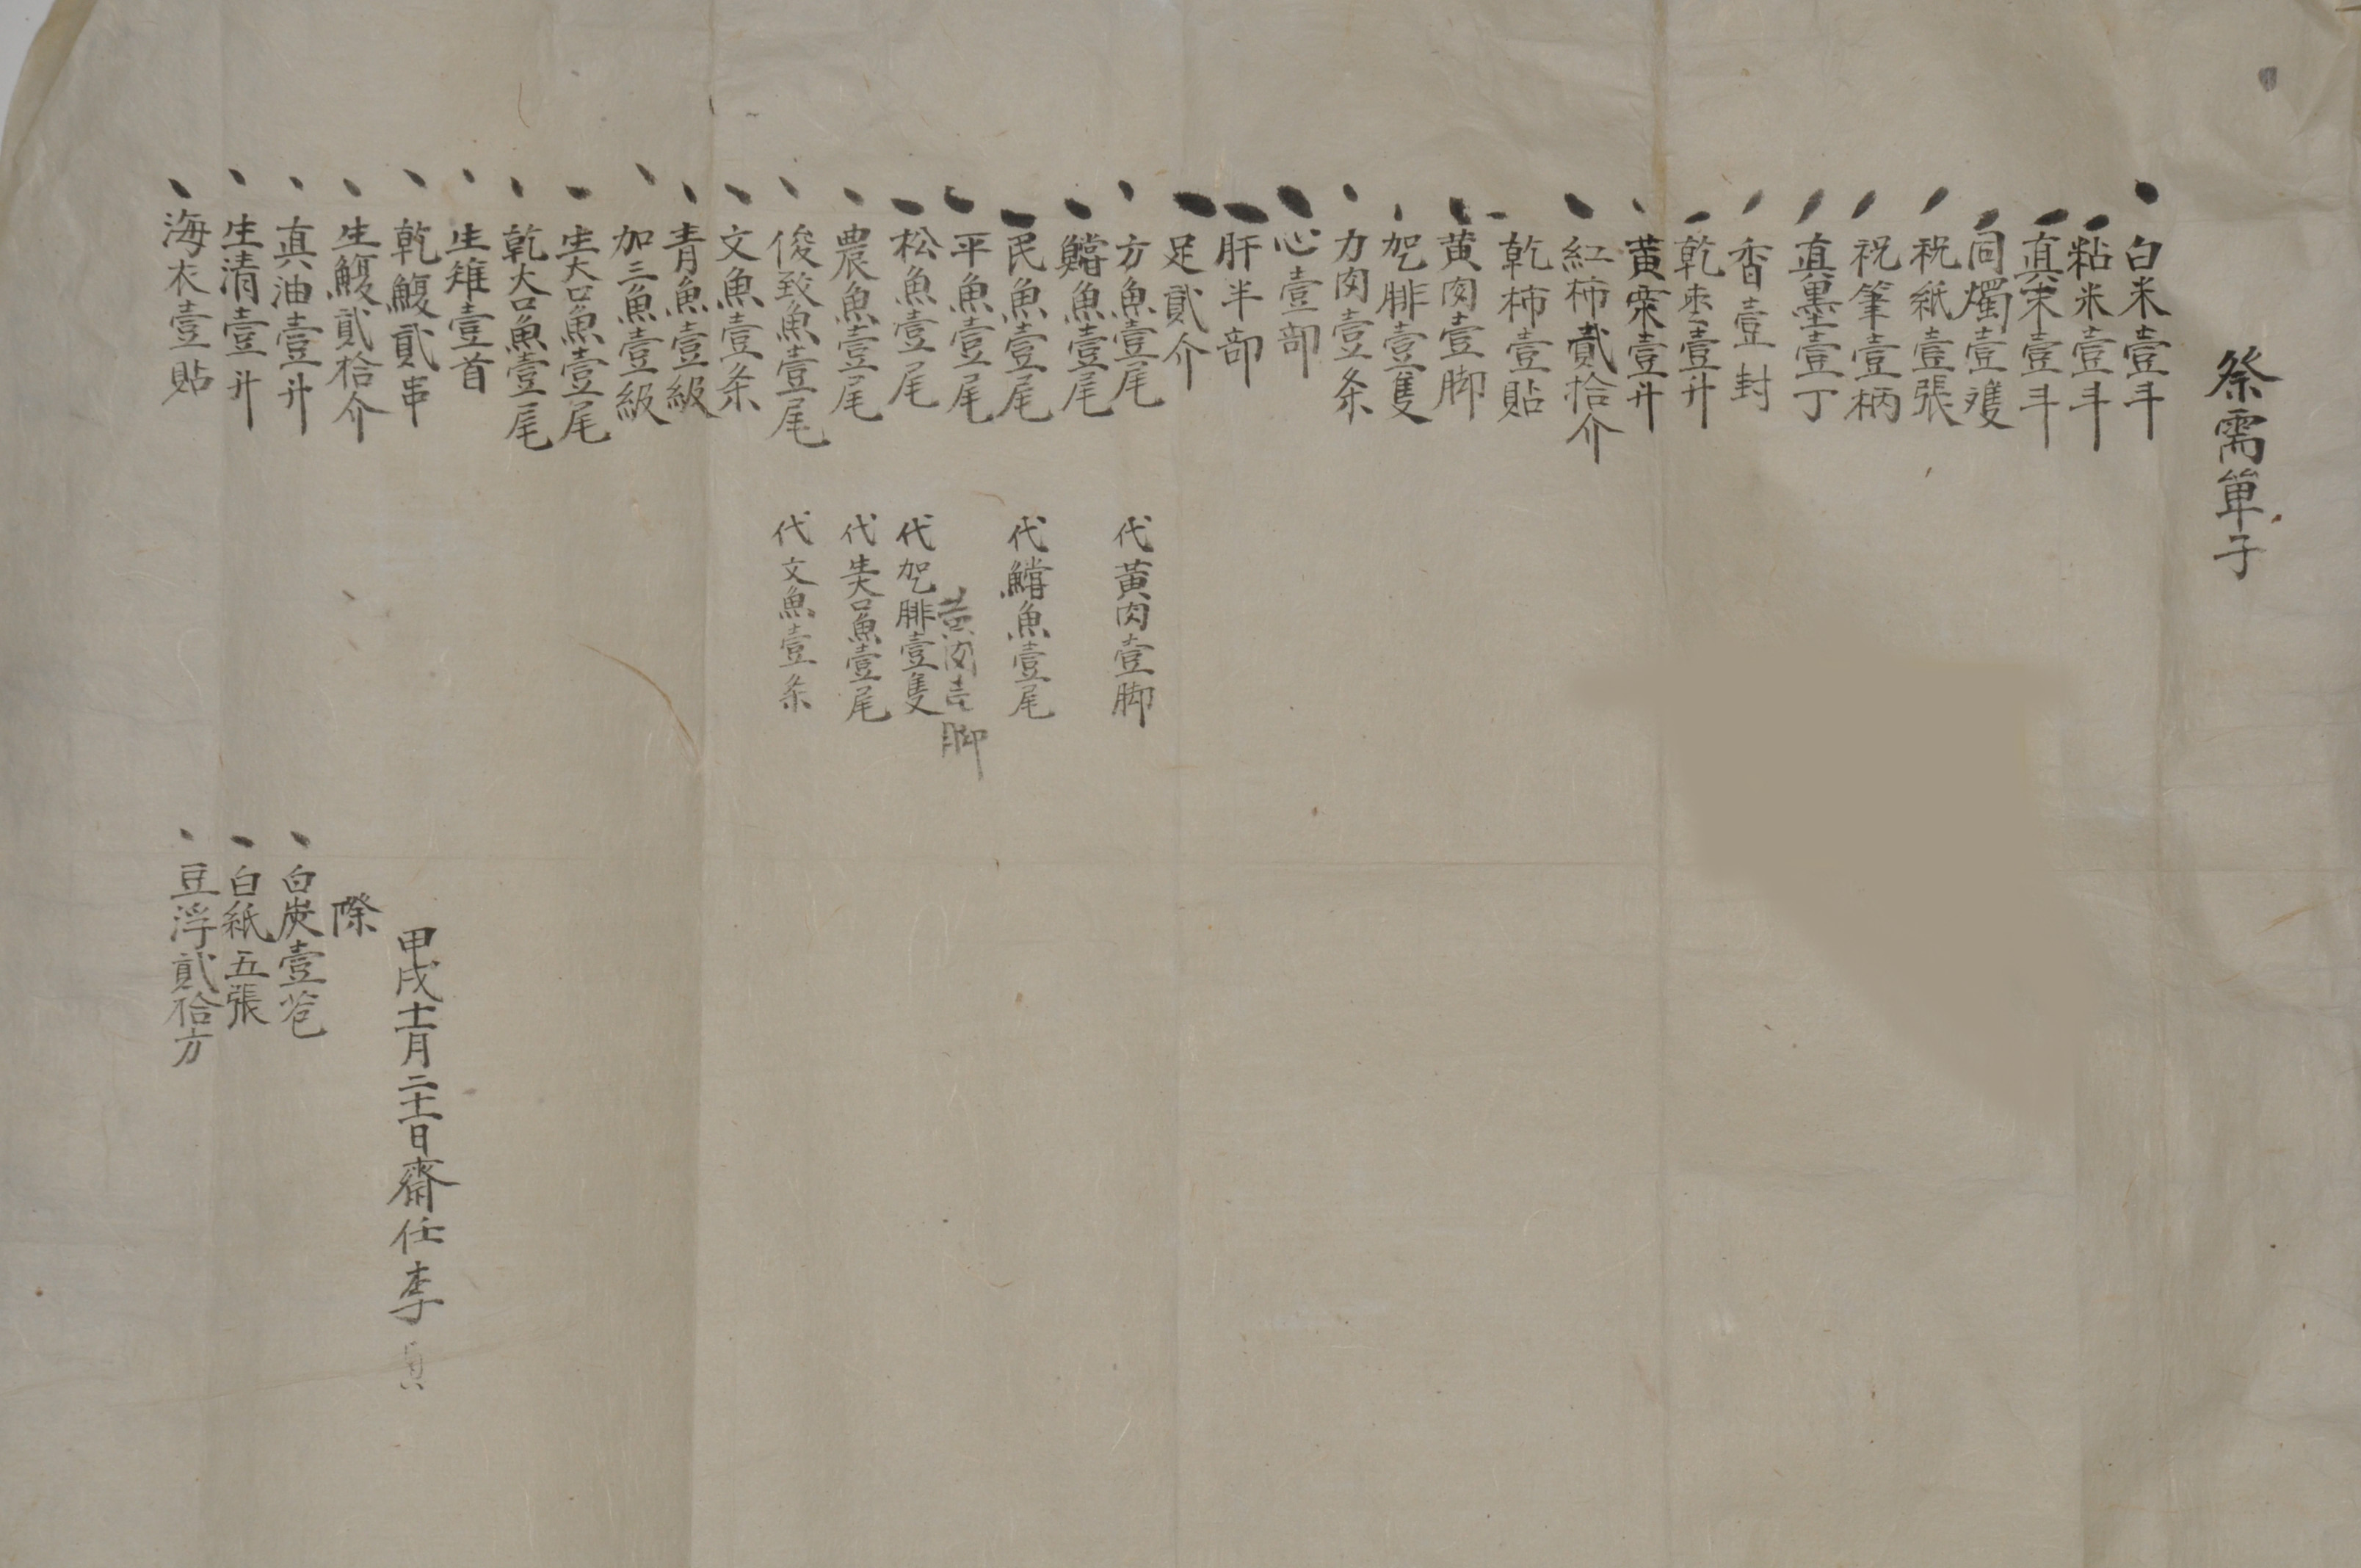 祭需單子
白米壹斗
粘米壹斗
真末壹斗
同燭壹雙
祝紙壹張
祝筆壹柄
真墨壹丁
香壹封
乾枣壹升
黃栗壹升
紅柿貳拾介
乾柿壹貼
黃肉壹脚
乫腓壹隻
力肉壹条
心壹部
肝半部
足貳介
方魚壹尾 代黃肉壹脚
鱨魚壹尾
民魚壹尾 代鱨魚壹尾
平魚壹尾 黃肉壹脚
松魚壹尾 代乫腓壹隻
農魚壹尾 代生大口魚壹尾
俊致魚壹尾 代文魚壹条
文魚壹条
青魚壹級
加三魚壹級
生大口魚壹尾
乾大口魚壹尾
生雉壹首
乾鰒貳串
生鰒貳拾介
真油壹升
生清壹升
海衣壹貼
甲戌十一月二十一日齋任李
際
白炭壹苞
白紙五張
豆浮貳拾方